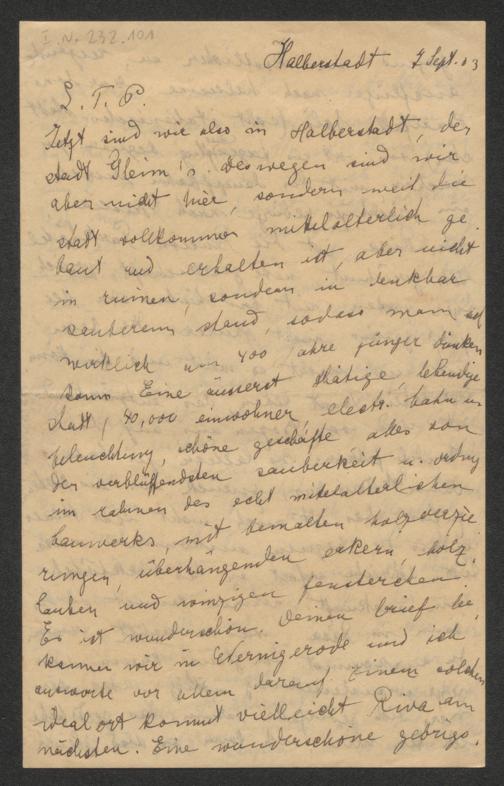 I. N. 232.101
Halberstadt 7 Sept. 03
L. T. P.
Jetzt sind wir also in Halberstadt, der
stadt Gleim's. Deswegen sind wir
aber nicht hier, sondern weil die
stadt vollkommen mittelalterlich ge
baut und erhalten ist, aber nicht
in ruinen, sondern in denkbar
sauberem stand, sodass man sich
wirklich um 400 jahre jünger dünken
kann. Eine äusserst thätige, lebendige
stadt, 40,000 einwohner, electr. bahn u.
beleuchtung, schöne geschäfte alles von
der verblüffendsten sauberkeit u. ordng
im rahmen des echt mittelalterlichen
bauwerks, mit bemalten holzverzie
rungen, überhängenden erkern, holz
balken und winzigen fensterchen.
Es ist wunderschön. Deinen brief be
kamen wir in Wernigerode und ich
antworte vor allem darauf. Einem solchen
ideal ort kommt vielleicht Riva am
nächsten. Eine wunderschöne gebirgs